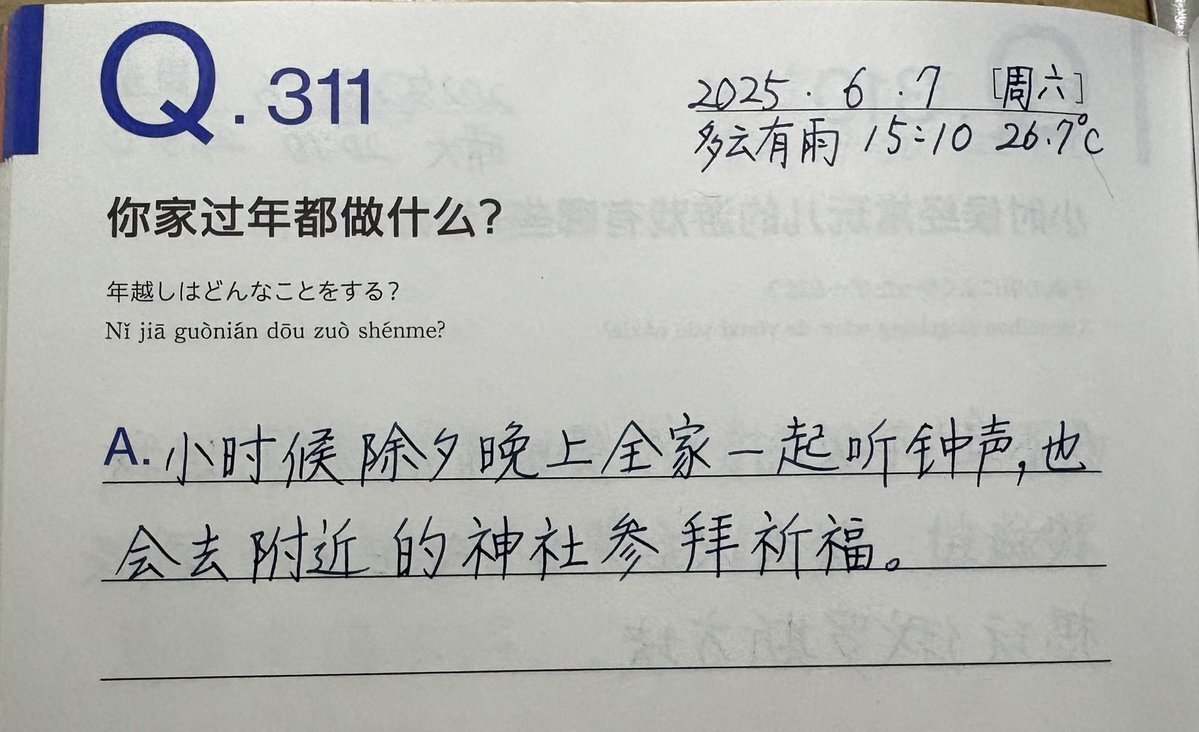 Q.311
2025.6.7 [周六]
多云有雨 15:10 26.7℃
你家过年都做什么?
年越しはどんなことをする?
Nǐ jiā guònián dōu zuò shénme?
A. 小时候除夕晚上全家一起听钟声,也
会去附近的神社参拜祈福。